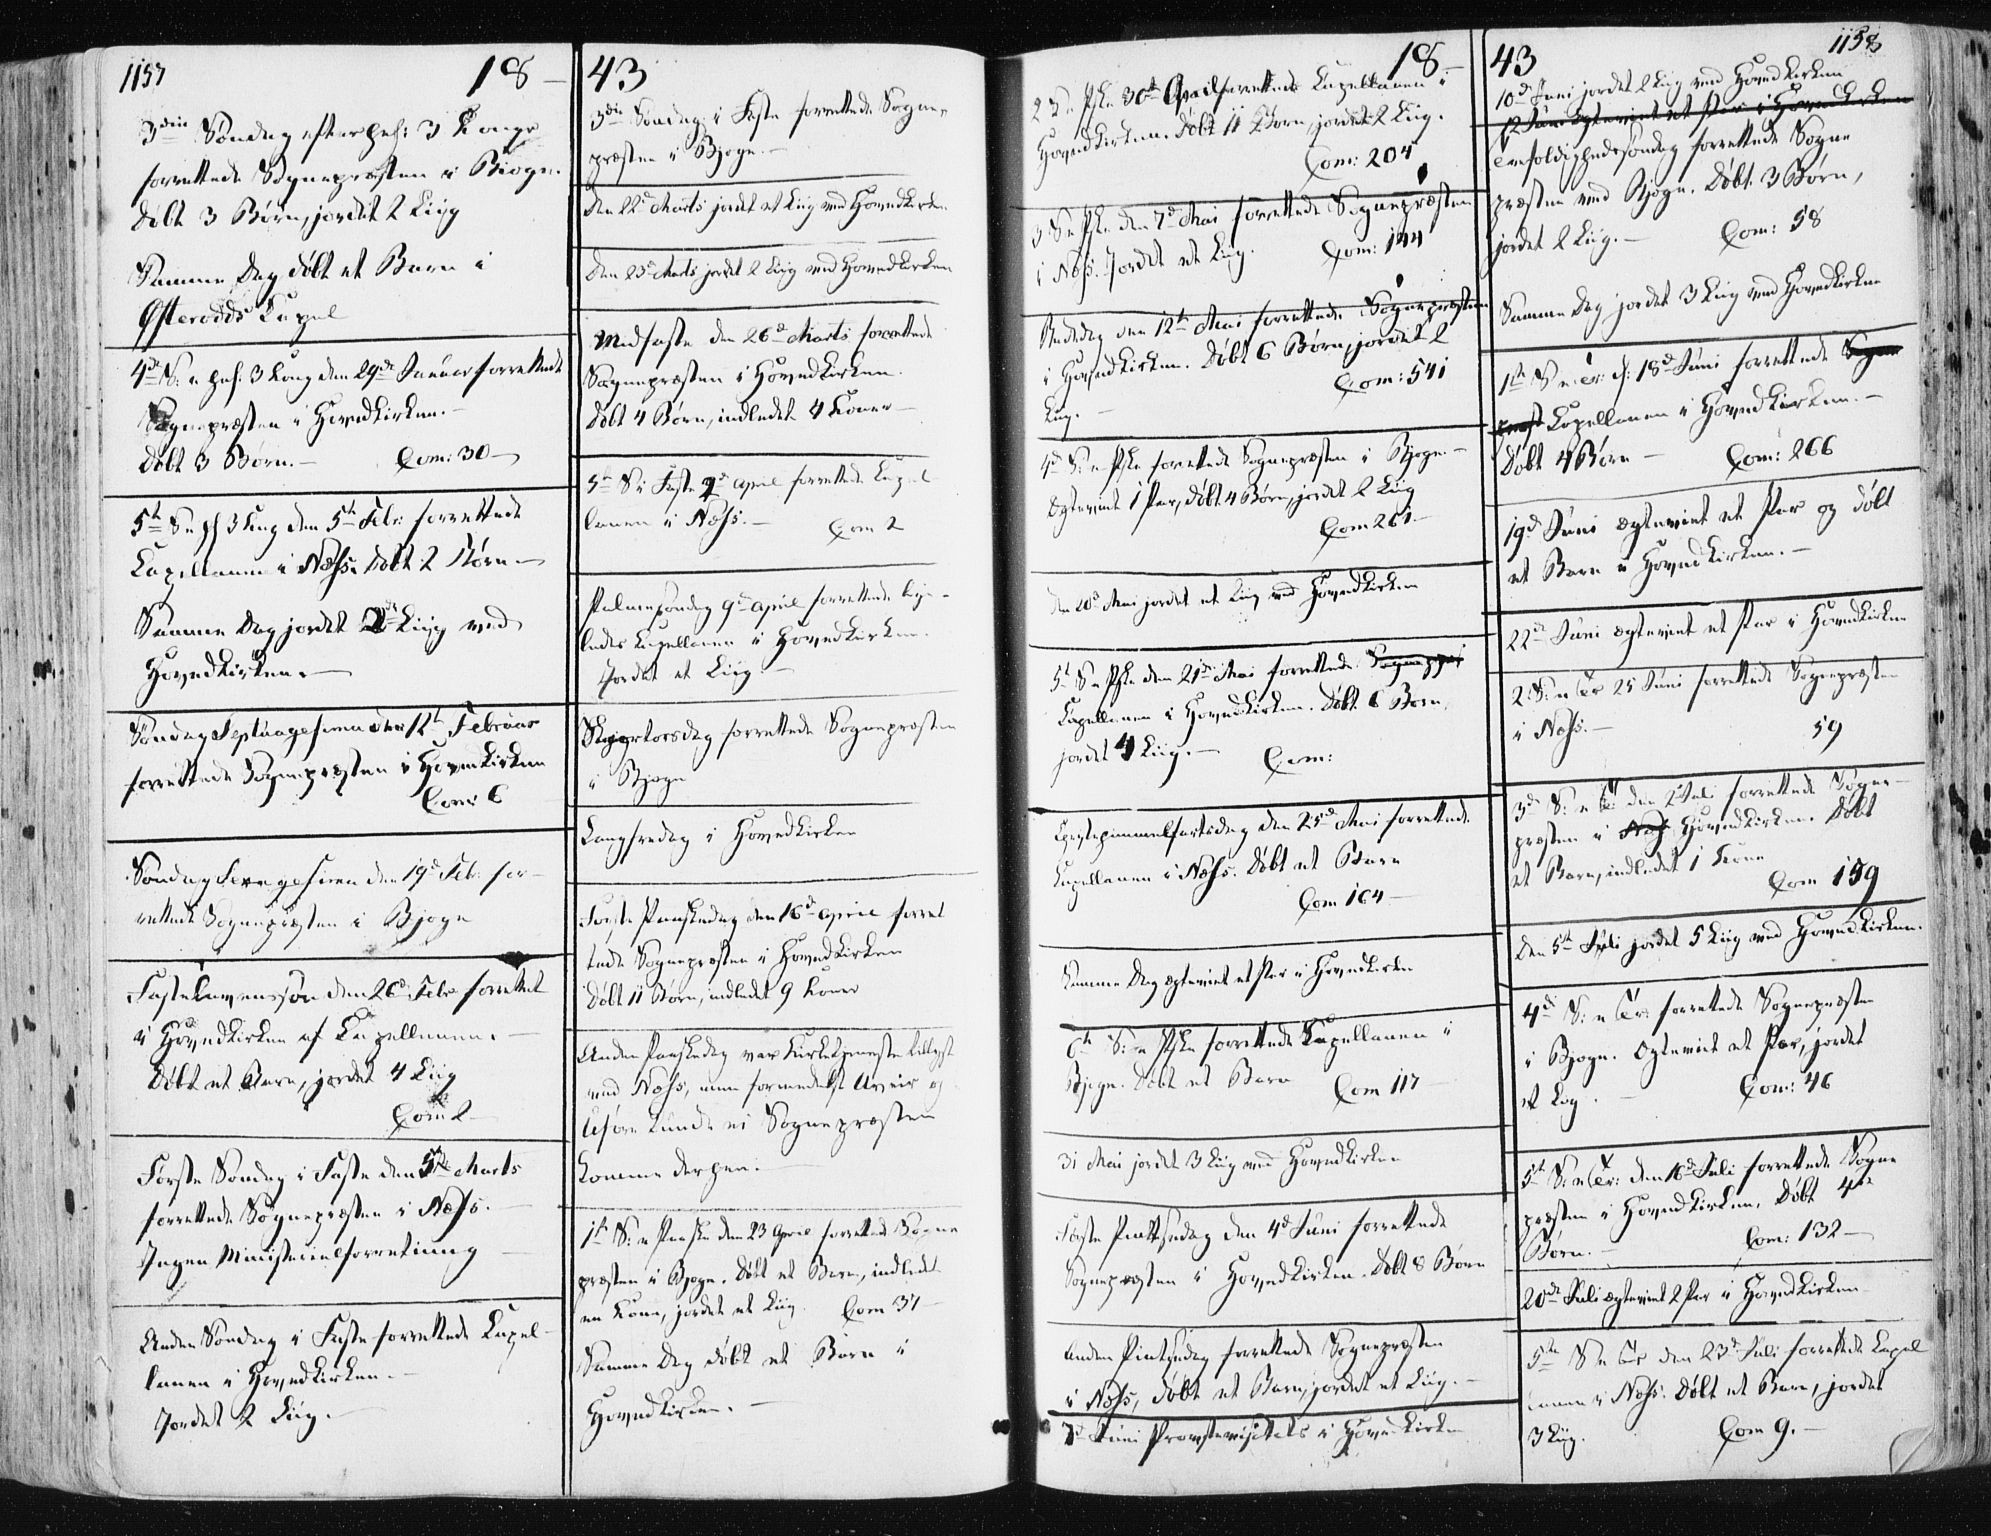 1157
18 - 43
3die Søndag efter hel: 3 Konge
forrettede Sognepræsten i Bjogn.
Døbt 3 Børn, jordet 2 Liig
Samme Dag døbt et Barn i
Østeraads Kapel
4de S: e hel. 3 Kong den 29de Januar forrettede
Sognepræsten i Hovedkirken.-
Døbt 3 Børn.- Com: 30-
5te S e h 3 Kong den 5te Febr: forrettede
Kapellanen i Næss. Døbt 2 Børn-
Samme Dag jordet 2de Liig ved
Hovedkirken.-
Søndag Septuagesima den 12te Februar
forrettede Sognepræsten i Hovedkirken
Com: 6
Søndag Sexagesima den 19de Feb: for-
rettede Sognepræsten i Bjogn
Fastelavenssøn den 26de Febr: forrettet
i Hovedkirken af Kapellanen.-
Døbt et Barn, jordet 4 Liig
Com 2-
Første Søndag i Faste den 5te Marts
forrettede Sognepræsten i Næss.
Ingen Ministerialforretning
Anden Søndag i Faste forrettede Kapel-
lanen i Hovedkirken.-
Jordet 2 Liig.-
3die Søndag i Faste forrettede Sogne-
præsten i Bjogn.-
Den 22de Marts jordet et Liig ved Hovedkirken
Den 23de Marts jordet 2 Liig ved Hovedkirken
Midfaste den 26de Marts forrettede
Sognepræsten i Hovedkirken.
Døbt 4 Børn, indledet 4 Koner-
5te S i Faste 2de April forrettede Kapel
lanen i Næss.- Com 2
Palmesøndag 9de April forrettede lige-
ledes Kapellanen i Hovedkirken.
Jordet et Liig.-
Skjertorsdag forrettede Sognepræsten
i Bjogn
Langfredag i Hovedkirken
Første Paaskedag den 16de April forret
tede Sognepræsten i Hovedkirken
Døbt 11 Børn, indledet 9 Koner
Anden Paaskedag var Kirketjeneste tillyst
ved Næss, men formedelst Uveir og
Uføre kunde ei Sognepræsten
komme derhen.-
1te S: e Paaske den 23 April forrettede Sogne
præsten i Bjogn. Døbt et Barn, indledet
en Kone, jordet et Liig. Com 37-
Samme Dag døbt et Barn i
Hovedkirken.-
18- 43
1158
2 S e Pske 30te April forrettede Kapellanen i
Hovedkirken. Døbt 11 Børn, jordet 2 Liig.
Com: 204
3 S e Pske den 7de Mai forrettede Sognepræsten
i Næss. Jordet et Liig. Com: 144
Bededag den 12te Mai forrettede Sognepræsten
i Hovedkirken. Døbt 6 Børn, jordet 2
Liig.- Com: 541
4de S: e Pske forrettede Sognepræsten i Bjogn-
Ægteviet 1 Par, døbt 4 Børn, jordet 2 Liig
Com 261-
den 20de Mai jordet et Liig ved Hovedkirken
5te S e Pske den 21de Mai forrettede Sognepræ
Kapellanen i Hovedkirken. Døbt 6 Børn,
jordet 4 Liig.- Com:
Christihimmelfartsdag den 25de Mai forrettede
Kapellanen i Næss. Døbt et Barn
Com 164-
Samme Dag ægteviet et Par i Hovedkirken
6te S: e Pske forrettede Kapellanen i
Bjogn. Døbt et Barn Com 117
31 Mai jordet 3 Liig ved Hovedkirken
Første Pintsedag den 4de Juni forrettede
Sognepræsten i Hovedkirken. Døbt 8 Børn
Anden Pintsedag forrettede Sognepræsten
i Næss, døbt et Barn, jordet et Liig.-
7de Juni Provstevisitats i Hovedkirken
10de Juni jordet 2 Liig ved Hovedkirken
12 Juni ægteviet et Par i Hovedkirken
Trefoldighedssøndag forrettede Sogne
præsten ved Bjogn. Døbt 3 Børn,
jordet 2 Liig.- Com: 58
Samme Dag jordet 3 Liig ved Hovedkirken
1te S e Tr: d: 18de Juni forrettede Sogne
præst Kapellanen i Hovedkirken.-
Døbt 4 Børn- Com: 266
19de Juni ægteviet et Par og døbt
et Barn i Hovedkirken.-
22de Juni ægteviet et Par i Hovedkirken
2 S: e Tr 25 Juni forrettede Sognepræsten
i Næss.- 59
3de S: e Tr: den 2 Juli forrettede Sogne-
præsten i Næs Hovedkirken. Døbt
et Barn, indledet 1 Kone
Com 159
Den 5te Juli jordet 5 Liig ved Hovedkirken.
4de S: e Tr: forrettede Sognepræsten
i Bjogn. Ægteviet et Par, jordet
et Liig.- Com: 46
5te S: e Tr: den 16de Juli forrettede Sogne
præsten i Hovedkirken. Døbt 4re
Børn.- Com: 132-
20de Juli ægteviet 2 Par i Hovedkirken
5te S e Tr den 23de Juli forrettede Kapel
lanen i Næss. Døbt et Barn, jordet
3 Liig. Com 9.-